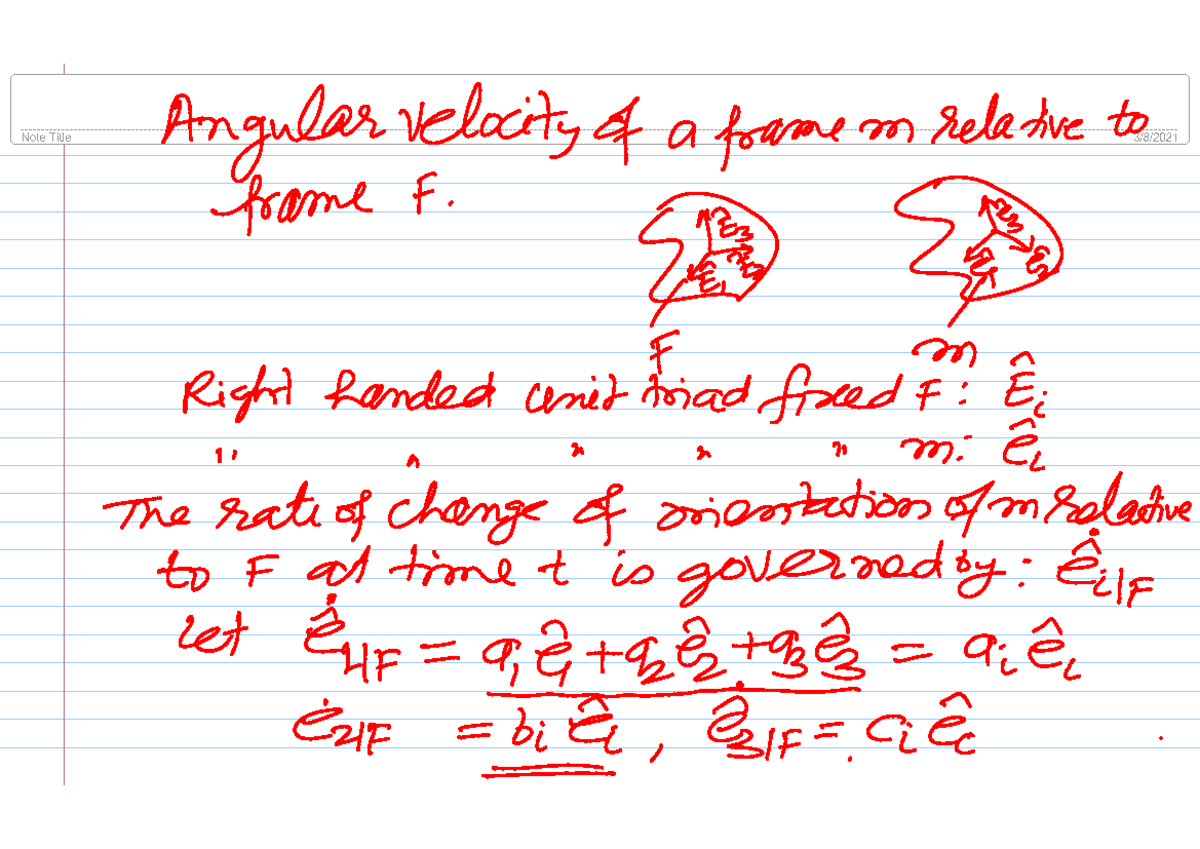 Note Title
3/8/2021
Angular velocity of a frame m relative to
frame F.
Ê₃ Ê₂ Ê₁
ê₃ ê₂ ê₁
F m
Right handed unit triad fixed F: Êᵢ
" " " " " m: êᵢ
The rate of change of orientation of m relative
to F at time t is governed by: ê̇ᵢ|F
Let ê̇₁|F = a₁ê₁ + a₂ê₂ + a₃ê₃ = aᵢêᵢ
ė₂|F = bᵢêᵢ, ê̇₃|F = cᵢêᵢ